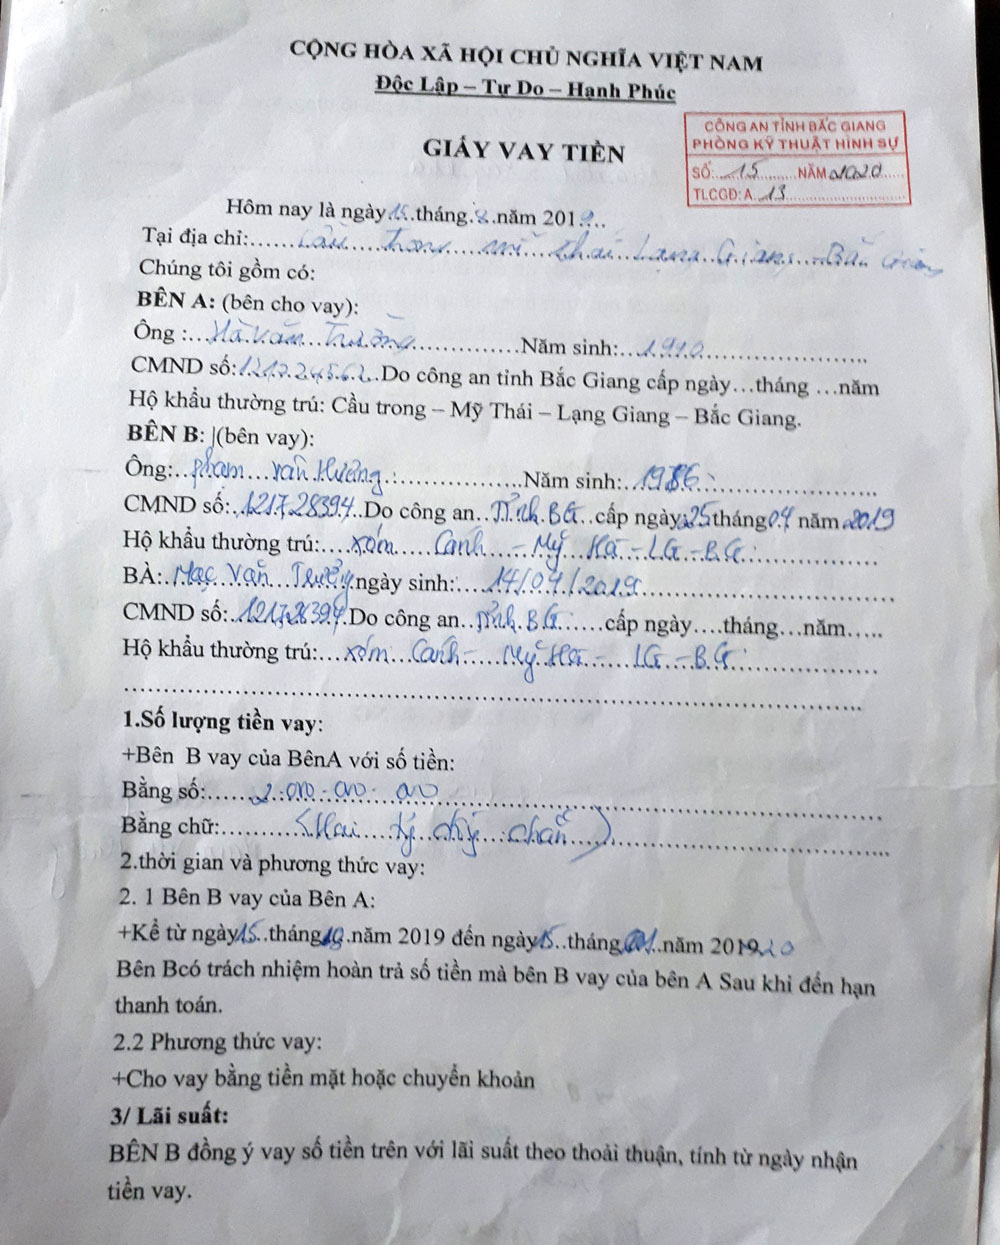 CỘNG HÒA XÃ HỘI CHỦ NGHĨA VIỆT NAM
Độc Lập – Tự Do – Hạnh Phúc
GIẤY VAY TIỀN
CÔNG AN TỈNH BẮC GIANG
PHÒNG KỸ THUẬT HÌNH SỰ
SỐ:...15...........NĂM 2020.....
TLCGĐ: A...13...........................
Hôm nay là ngày 15.tháng.8.năm 2019...
Tại địa chỉ:......Cầu....Trong....Mĩ Thái..Lạng.Giang...Bắc Giang
Chúng tôi gồm có:
BÊN A: (bên cho vay):
Ông :...Hà Văn Trường..................Năm sinh:...1910........................
CMND số:121724562..Do công an tỉnh Bắc Giang cấp ngày...tháng ...năm
Hộ khẩu thường trú: Cầu trong – Mỹ Thái – Lạng Giang – Bắc Giang.
BÊN B: (bên vay):
Ông:..Phạm...Văn Hưởng.....................Năm sinh:..1986.........................
CMND số:.121728394..Do công an..Tỉnh.BG..cấp ngày 25 tháng 04 năm 2019
Hộ khẩu thường trú:....xóm.....Cánh - Mỹ Hà - LG - BG....................
BÀ:.Mạc Văn Trưởng ngày sinh:....14/04/2019.....................................
CMND số:.121728394.Do công an..tỉnh.BG......cấp ngày....tháng...năm.....
Hộ khẩu thường trú:...xóm...Cánh-....Mỹ Hà-...LG - B.G....................
1.Số lượng tiền vay:
+Bên B vay của BênA với số tiền:
Bằng số:......2.000.000.000.......................................................
Bằng chữ:.........(Hai....tỷ....chẵn).............................................
2.thời gian và phương thức vay:
2. 1 Bên B vay của Bên A:
+Kể từ ngày 15..tháng 10.năm 2019 đến ngày 15..tháng 01..năm 2019 20
Bên Bcó trách nhiệm hoàn trả số tiền mà bên B vay của bên A Sau khi đến hạn
thanh toán.
2.2 Phương thức vay:
+Cho vay bằng tiền mặt hoặc chuyển khoản
3/ Lãi suất:
BÊN B đồng ý vay số tiền trên với lãi suất theo thoải thuận, tính từ ngày nhận
tiền vay.